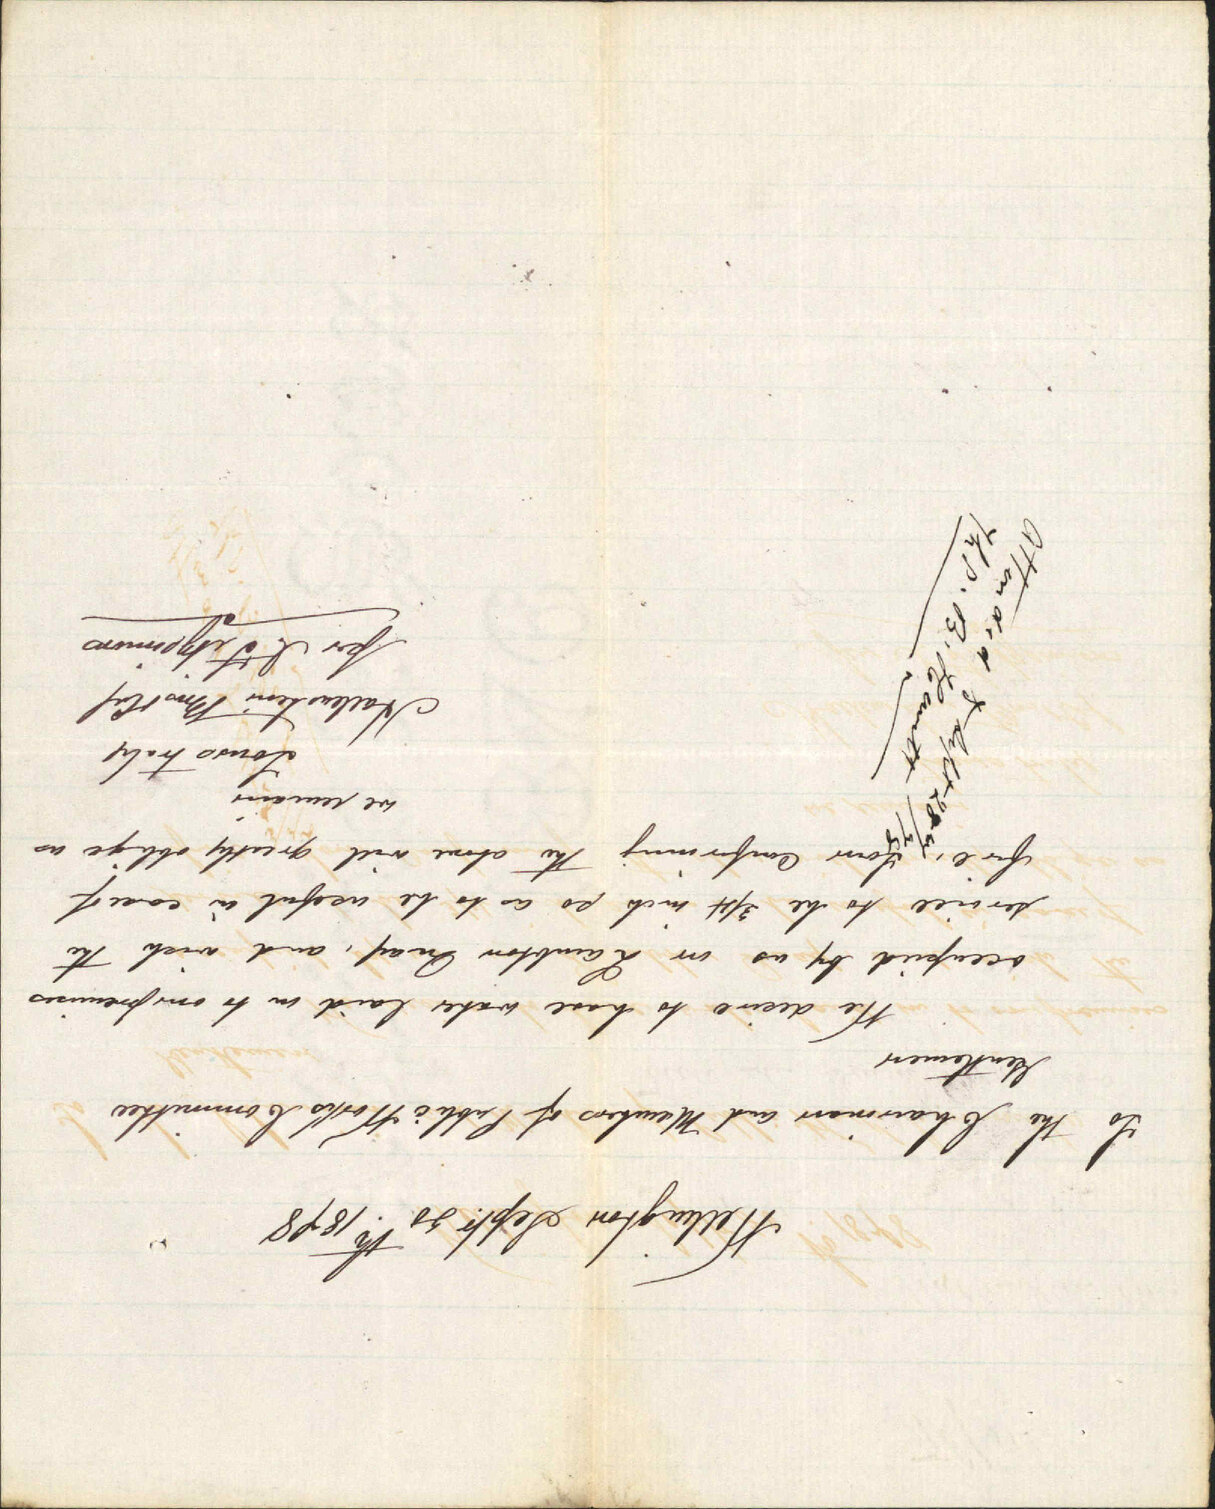 Wellington Septr 30th. 1878
To the Chairman and Members of Public Works Committee
Gentlemen
We desire to have water laid on to our premises
occupied by us on Lambton Quay, and wish the
service to be 3/4 inch so as to be useful in case of
fire, Your confirming the above will greatly oblige us
we remain
Yours truly
Hallenstein Bros & Co
per
Attended